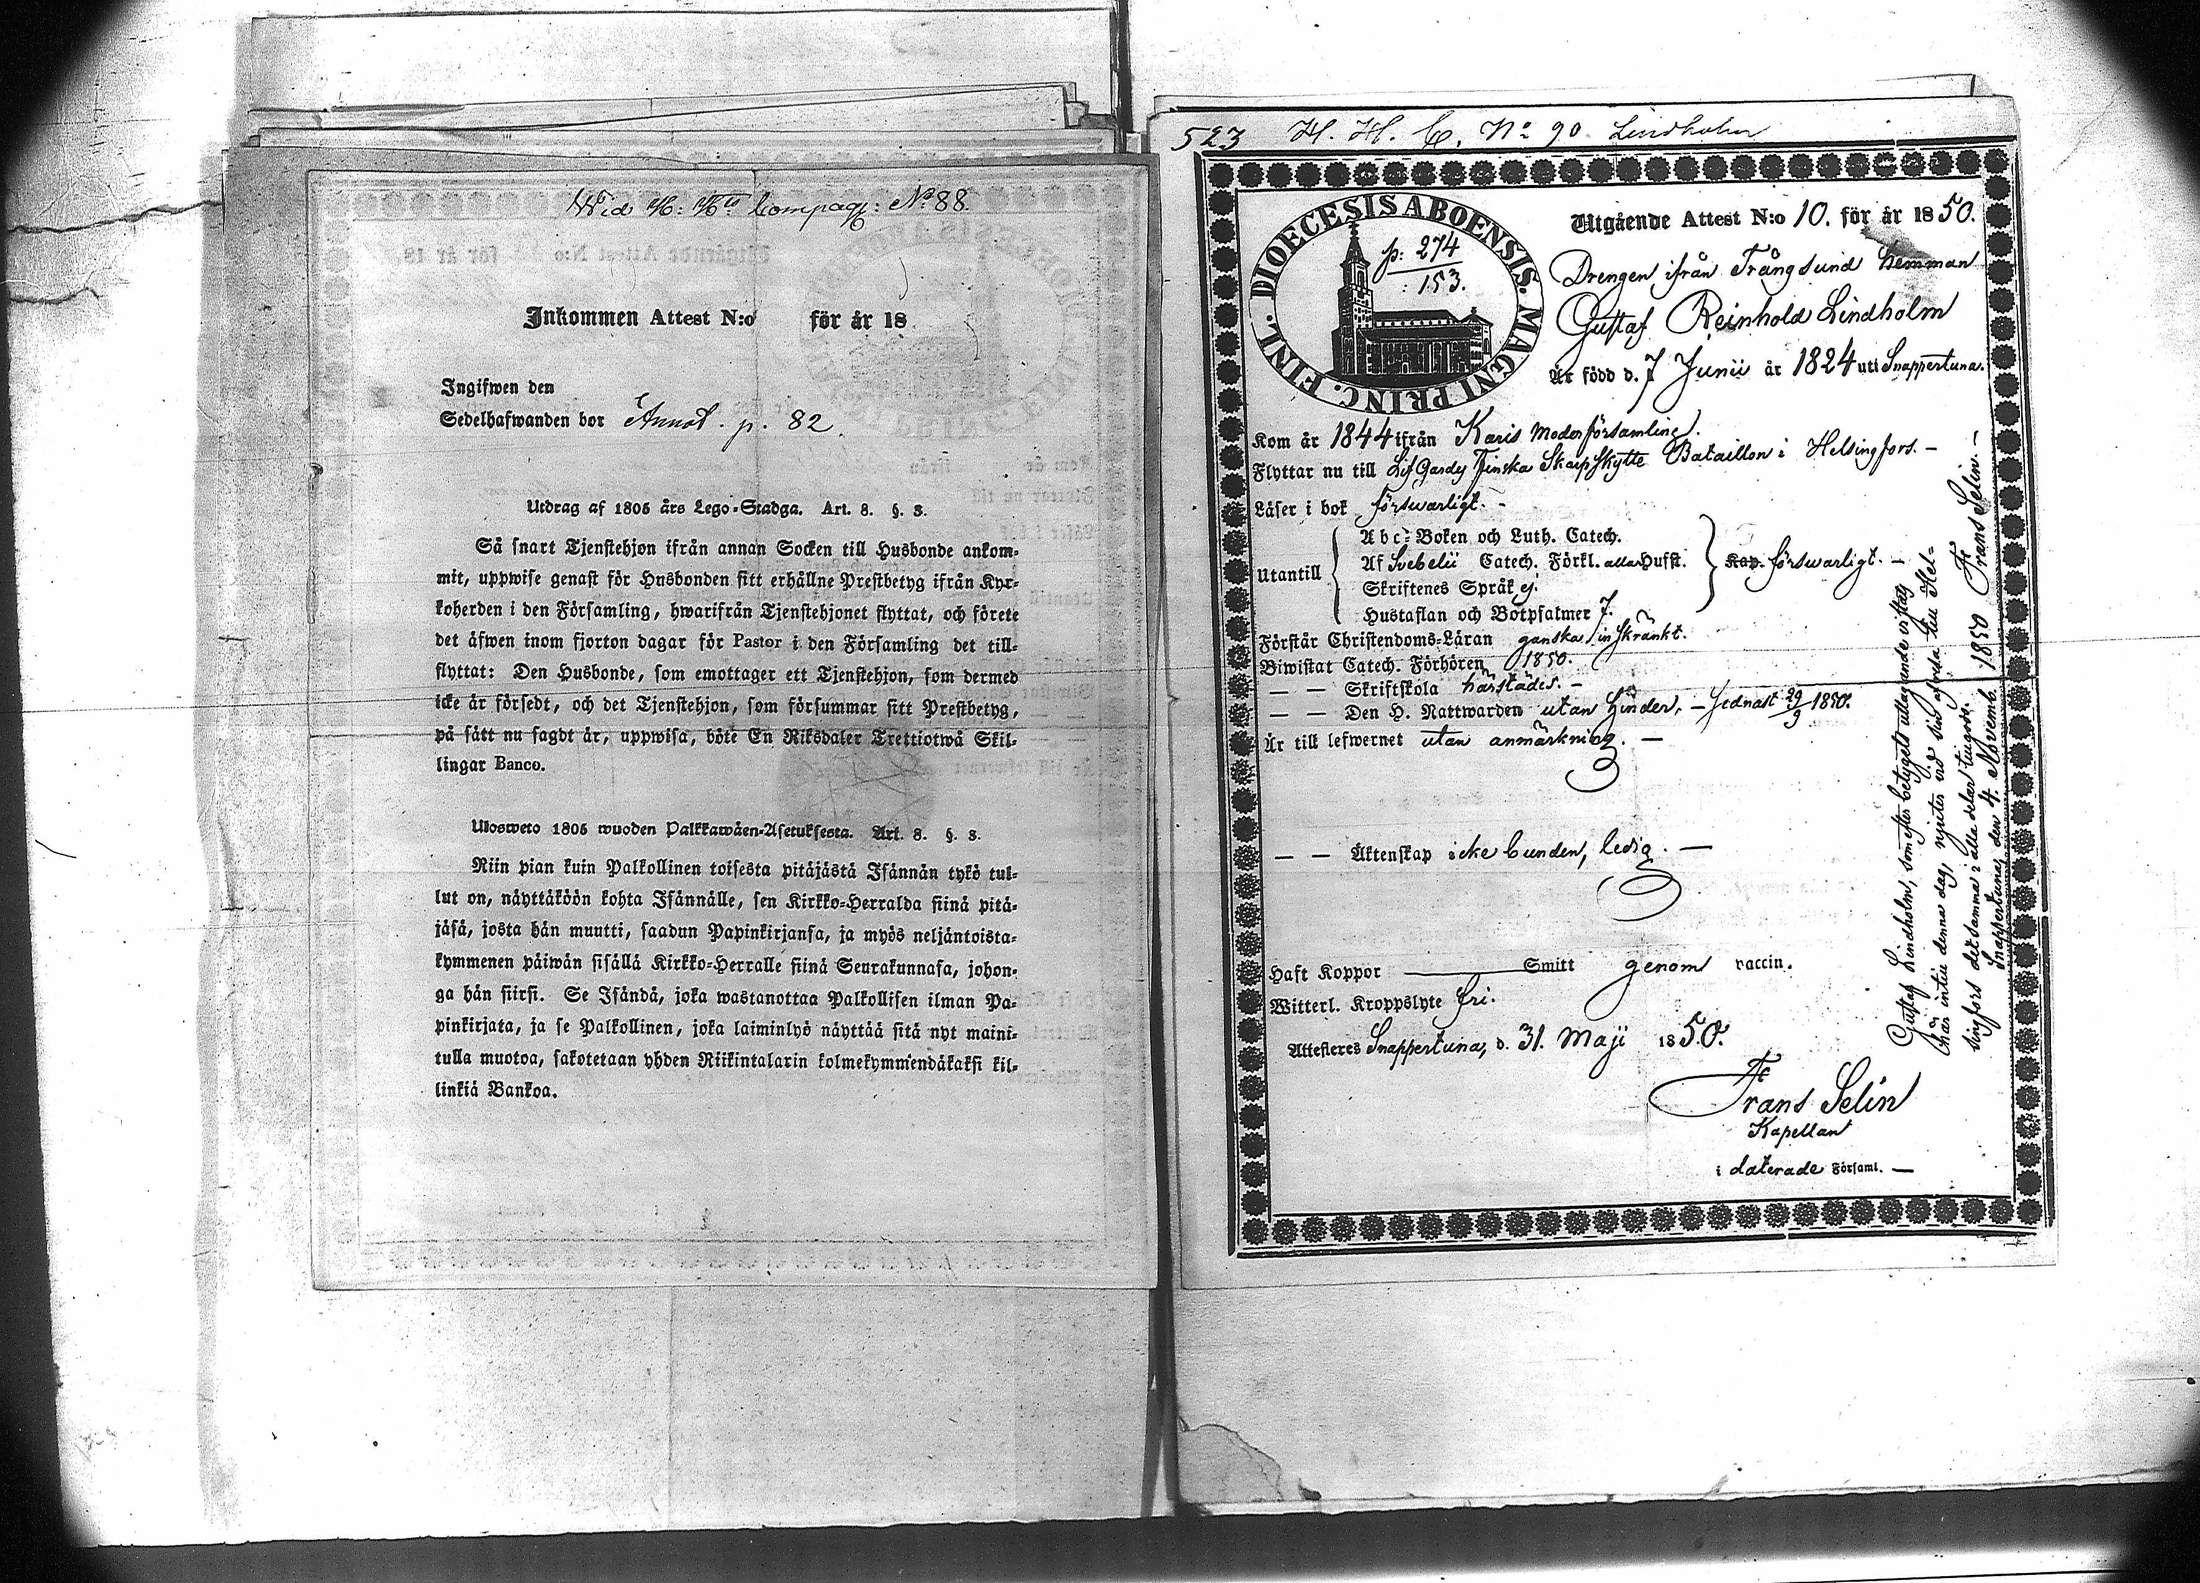 Wid H: Hts Compagn: No 88.
Inkommen Attest N:o för år 18
Ingifwen den
Sedelhafwanden bor Annot. p. 82.
Utdrag af 1805 års Lego-Stadga. Art. 8. §. 3.
Så snart Tjenstehjon ifrån annan Socken till Husbonde ankom-
mit, uppwise genast för Husbonden sitt erhållne Prestbetyg ifrån Kyr-
koherden i den Församling, hwarifrån Tjenstehjonet flyttat, och förete
det äfwen inom fjorton dagar för Pastor i den Församling det till-
flyttat: Den Husbonde, som emottager ett Tjenstehjon, som dermed
icke är försedt, och det Tjenstehjon, som försummar sitt Prestbetyg,
på sätt nu sagdt är, uppwisa, böte En Riksdaler Trettiotwå Skil-
lingar Banco.
Ulosweto 1805 wuoden Palkkawäen-Asetuksesta. Art. 8. §. 3.
Niin pian kuin Palkollinen toisesta pitäjästä Isännän tykö tul-
lut on, näyttäköön kohta Isännälle, sen Kirkko-Herralda siinä pitä-
jäsä, josta hän muutti, saadun Papinkirjansa, ja myös neljäntoista-
kymmenen päiwän sisällä Kirkko-Herralle siinä Seurakunnasa, johon-
ga hän siirsi. Se Isändä, joka wastanottaa Palkollisen ilman Pa-
pinkirjata, ja se Palkollinen, joka laiminlyö näyttää sitä nyt maini-
tulla muotoa, sakotetaan yhden Riikintalarin kolmekymmendäkaksi kil-
linkiä Bankoa.
523 H. H. C. No 90 Lindholm
DIOECESIS ABOENSIS. MAGNI PRINC. FINL.
p: 274
: 153.
Utgående Attest N:o 10. för år 1850.
Drengen ifrån Trångsund hemman
Gustaf Reinhold Lindholm
Är född d. 7 Junii år 1824 uti Snappertuna.
Kom år 1844 ifrån Karis Moderförsamling.
Flyttar nu till Lif Gardes Finska Skarpskytte Bataillon i Helsingfors. –
Läser i bok försvarligt. –
Utantill
Abc-Boken och Luth. Catech.
Af Svebelii Catech. Förkl. alla Hufst.
Skriftenes Språk ej.
Hustaflan och Botpsalmer 7.
Kap. försvarligt. –
Förstår Christendoms-Läran ganska inskränkt.
Biwistat Catech. Förhören 1850.
— — Skriftskola härstädes. –
— — Den H. Nattwarden utan hinder, – sednast 29/9 1850.
Är till lefwernet utan anmärkning. —
— — Äktenskap icke bunden, ledig. —
Haft Koppor — Smitt genom vaccin.
Witterl. Kroppslyte fri.
Attesteres Snappertuna, d. 31. Maji 1850.
Frans Selin
Kapellan
i daterade Församl. —
Gustaf Lindholm, som efter betygets uttagande vistats
här intill denna dag, njuter vid sin afresa till Hel-
singfors detsamma i alla delar tillgodo.
Snappertuna, den 4. Novemb. 1850 Frans Selin. –